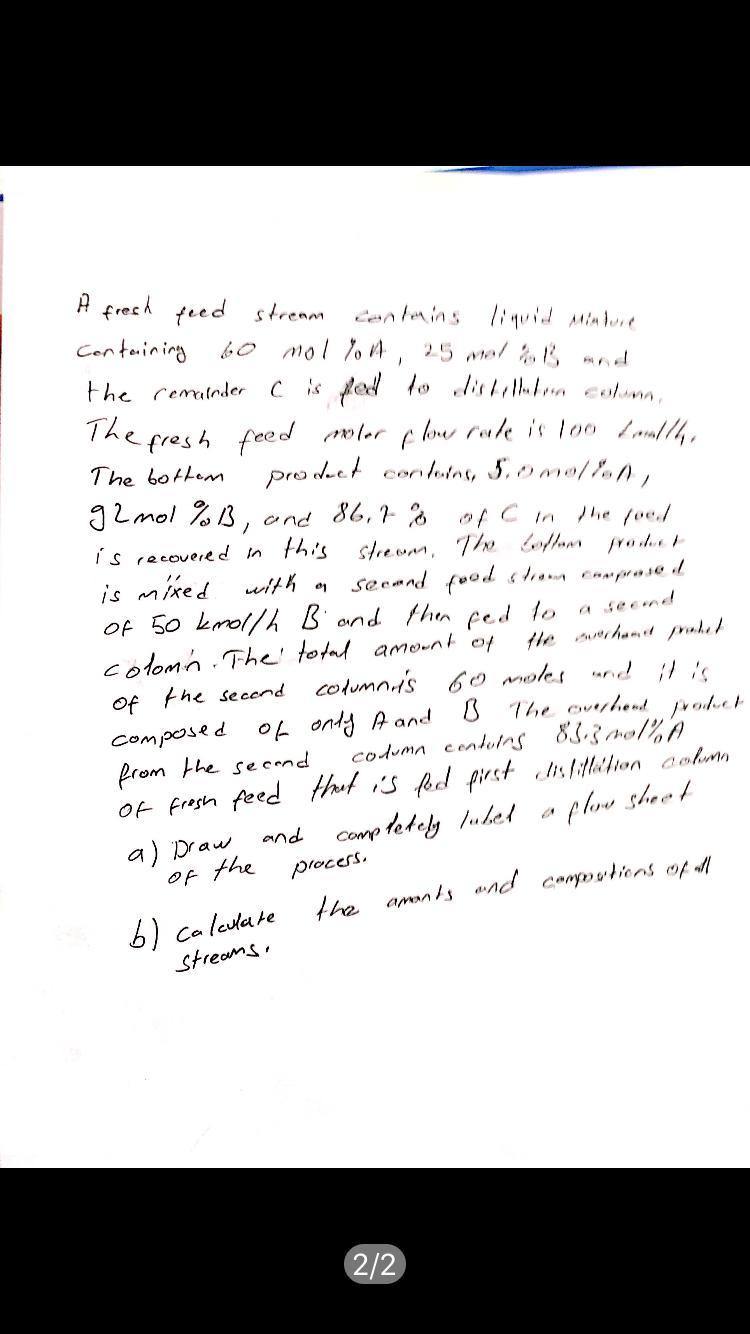 A fresh feed stream contains liquid Mixture
Containing 60 mol %A, 25 mol %B and
the remainder C is fed to distillation column.
The fresh feed molar flow rate is 100 kmol/h.
The bottom product contains, 5.0 mol %A,
92 mol %B, and 86.7 % of C in the feed
is recovered in this stream. The bottom product
is mixed with a second feed stream comprased
of 50 kmol/h B and then fed to a second
colomn. The total amount of the overhead product
of the second column is 60 moles and it is
composed of only A and B The overhead product
from the second column contains 83.3 mol % A
of fresh feed that is fed first distillation column
a) Draw and completely label a flow sheet
of the process.
b) calculate the amants and compositions of all
streams.
2/2